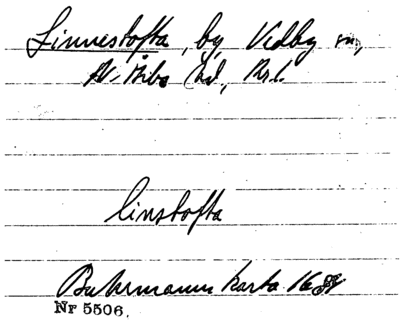 Linnestofta, by, Vedby sn,
N. Åsbo hd, Krl.
linstofta
Buhrmanns karta 1684
Nr 5506.